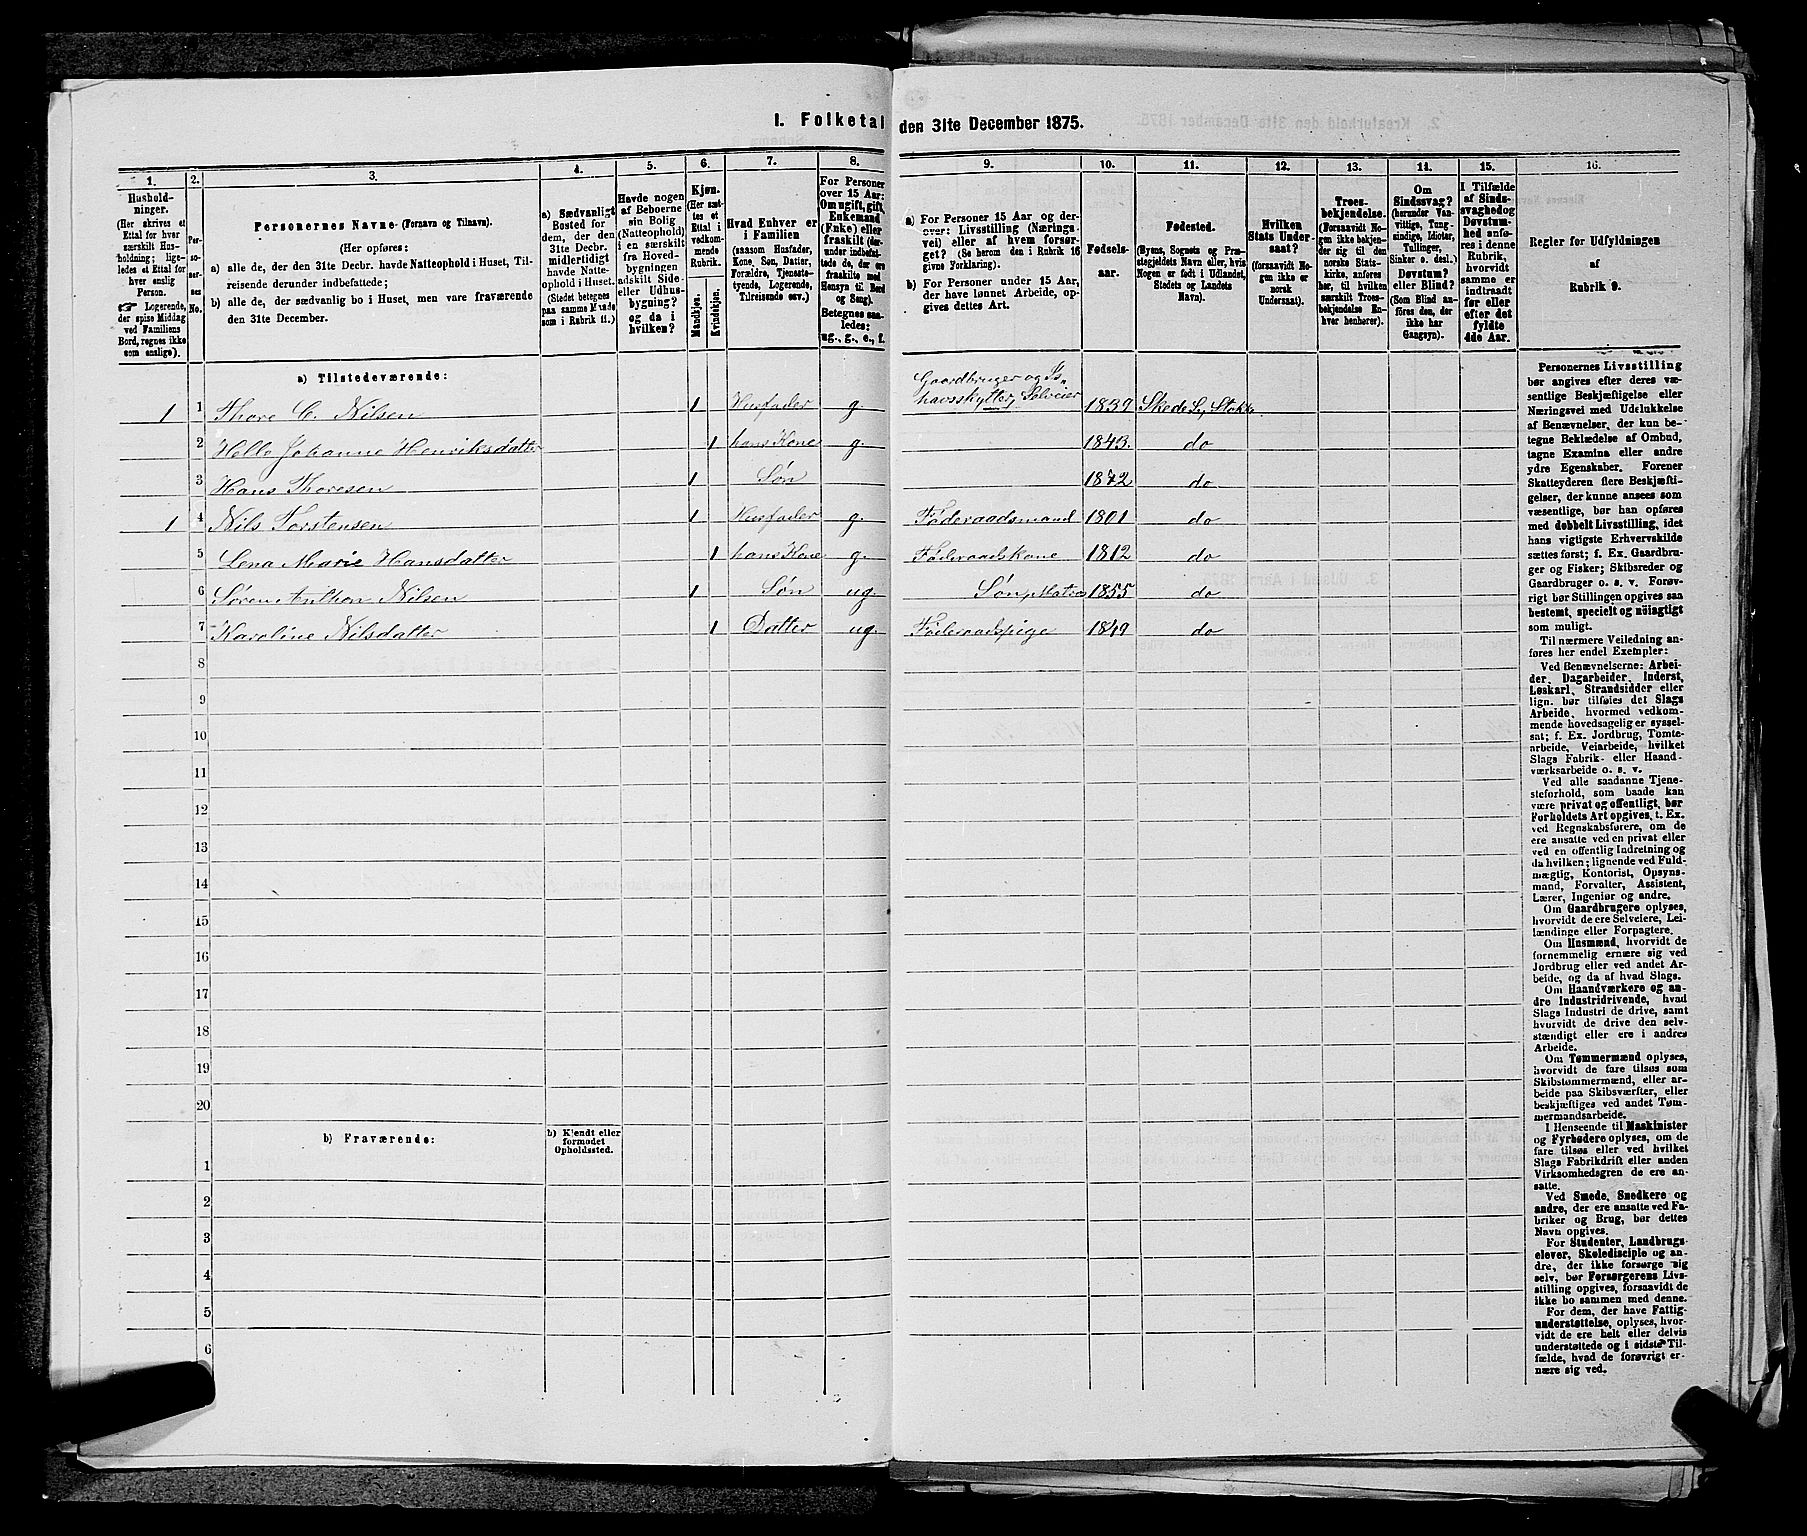 I. Folketal den 31te December 1875.
1.
2.
3.
4.
5.
6.
7.
8.
9.
10.
11.
12.
13.
14.
15.
16.
Hushold-
ninger.
(Her skrives et
Ettal for hver
særskilt Hus-
holdning; lige-
ledes et Ettal for
hver enslig
Person.
Logerende,
der spise Middag
ved Familiens
Bord, regnes ikke
som enslige).
Per-
so-
ner-
nes
No.
Personernes Navne (Fornavn og Tilnavn).
(Her opføres:
a) alle de, der den 31te Decbr. havde Natteophold i Huset, Til-
reisende derunder indbefattede;
b) alle de, der sædvanlig bo i Huset, men vare fraværende
den 31te December.
a) Sædvanligt
Bosted for
dem, der den
31te Decbr.
midlertidigt
havde Natte-
ophold i Huset.
(Stedet betegnes
paa samme Maade
som i Rubrik 11.)
Havde nogen
af Beboerne
sin Bolig
(Natteophold)
i en særskilt
fra Hoved-
bygningen
adskilt Side-
eller Udhus-
bygning?
og da i
hvilken?
Kjøn.
(Her sæt-
tes et
Ettal i
vedkom-
mende
Rubrik.
Mandkjøn.
Kvindekjøn.
Hvad Enhver er
i Familien
(saasom Husfader,
Kone, Søn, Datter,
Forældre, Tjeneste-
tyende, Logerende,
Tilreisende osv.)
For Personer
over 15 Aar:
Om ugift, gift,
Enkemand
(Enke) eller
fraskilt (der-
under indbefat-
tede de, der ere
fraskilte med
Hensyn til Bord
og Seng).
Betegnes saa-
ledes:
ug., g., e., f.
a) For Personer 15 Aar og der-
over: Livsstilling (Nærings-
vei) eller af hvem forsør-
get? (Se herom den i Rubrik 16
givne Forklaring).
b) For Personer under 15 Aar,
der have lønnet Arbeide, op-
gives dettes Art.
Fødsels-
aar.
Fødested.
(Byens, Sognets og Præ-
stegjeldets Navn eller, hvis
Nogen er født i Udlandet,
Stedets og Landets
Navn).
Hvilken
Stats Under-
saat?
(forsaavidt No-
gen ikke er
norsk
Undersaat).
Troes-
bekjendelse.
(Forsaavidt No-
gen ikke bekjen-
der sig til den
norske Stats-
kirke, anføres
her, til hvilken
særskilt Troes-
bekjendelse En-
hver henhører).
Om
Sindssvag?
(herunder Van-
vittige, Tung-
sindige, Idioter,
Tullinger,
Sinker o. desl.)
Døvstum?
eller Blind?
(Som Blind an-
føres den, der
ikke har
Gangsyn).
I Tilfælde
af Sinds-
svaghed og
Døvstum-
hed an-
føres i denne
Rubrik,
hvorvidt
samme er
indtraadt
før eller
efter det
fyldte
4de Aar.
Regler for Udfyldningen
af
Rubrik 9.
a) Tilstedeværende:
Gaardbruger og Is-
1 1 Thore C. Nilsen 1 Husfader g. havsskytter, Selveier 1839 Skede Sg. Stokke
2 Helle Johanne Henriksdatter 1 hans Kone g. 1843. do
3 Hans Thoresen 1 Søn 1872 do
1 4 Nils Torstensen 1 Husfader g. Føderaadsmand 1801 do
5 Lena Marie Hansdatter 1 hans Kone g. Føderaadskone 1812 do
6 Søren Anthon Nilsen 1 Søn ug. Søn, Matros 1855 do
7 Karoline Nilsdatter 1 Datter ug. Føderaadspige 1849 do
8
9
10
11
12
13
14
15
16
17
18
19
20
b) Fraværende:
b) Kjendt eller
formodet
Opholdssted.
1
2
3
4
5
6
Personernes Livsstilling
bør angives efter deres væ-
sentlige Beskjæftigelse eller
Næringsvei med Udelukkelse
af Benævnelser, der kun be-
tegne Beklædelse af Ombud,
tagne Examina eller andre
ydre Egenskaber. Forener
Skatteyderen flere Beskjæfti-
gelser, der kunne ansees som
væsentlige, bør han opføres
med dobbelt Livsstilling, idet
hans vigtigste Erhvervskilde
sættes først; f. Ex. Gaardbru-
ger og Fisker; Skibsreder og
Gaardbruger o. s. v. Forøv-
rigt bør Stillingen opgives saa
bestemt, specielt og nøiagtigt
som muligt.
Til nærmere Veiledning an-
føres her endel Exempler:
Ved Benævnelserne: Arbei-
der, Dagarbeider, Inderst,
Løskarl, Strandsidder eller
lign. bør tilføies det Slags
Arbeide, hvormed vedkom-
mende hovedsagelig er syssel-
sat; f. Ex. Jordbrug, Tomte-
arbeide, Veiarbeide, hvilket
Slags Fabrik- eller Haand-
værksarbeide o. s. v.
Ved alle saadanne Tjene-
steforhold, som baade kan
være privat og offentligt, bør
Forholdets Art opgives, t. Ex.
ved Regnskabsførere, om de
ere ansatte ved en privat eller
ved en offentlig Indretning og
da hvilken; lignende ved Fuld-
mægtig, Kontorist, Opsyns-
mand, Forvalter, Assistent,
Lærer, Ingeniør og andre.
Om Gaardbrugere oplyses,
hvorvidt de ere Selveiere, Lei-
lændinge eller Forpagtere.
Om Husmænd, hvorvidt de
fornemmelig ernære sig ved
Jordbrug eller ved andet Ar-
beide, og da af hvad Slags.
Om Haandværkere og an-
dre Industridrivende, hvad
Slags Industri de drive, samt
hvorvidt de drive den selv-
stændigt eller ere i andres
Arbeide.
Om Tømmermænd oplyses,
hvorvidt de fare tilsøs som
Skibstømmermænd, eller ar-
beide paa Skibsværfter, eller
beskjæftiges ved andet Tøm-
mermandsarbeide.
I Henseende til Maskinister
og Fyrbødere oplyses, om de
fare tilsøs eller ved hvilket
Slags Fabrikdrift eller anden
Virksomhedsgren de ere an-
satte.
Ved Smede, Snedkere og
andre, der ere ansatte ved Fa-
briker og Brug, bør dettes
Navn opgives.
For Studenter, Landbrugs-
elever, Skoledisciple og an-
dre, der ikke forsørge sig
selv, bør Forsørgerens Livs-
stilling opgives, forsaavidt de
ikke bo sammen med denne.
For dem, der have Fattig-
understøttelse, oplyses, hvor-
vidt de ere helt eller delvis
understøttede og i sidste Til-
fælde, hvad de forøvrigt er-
nære sig ved.